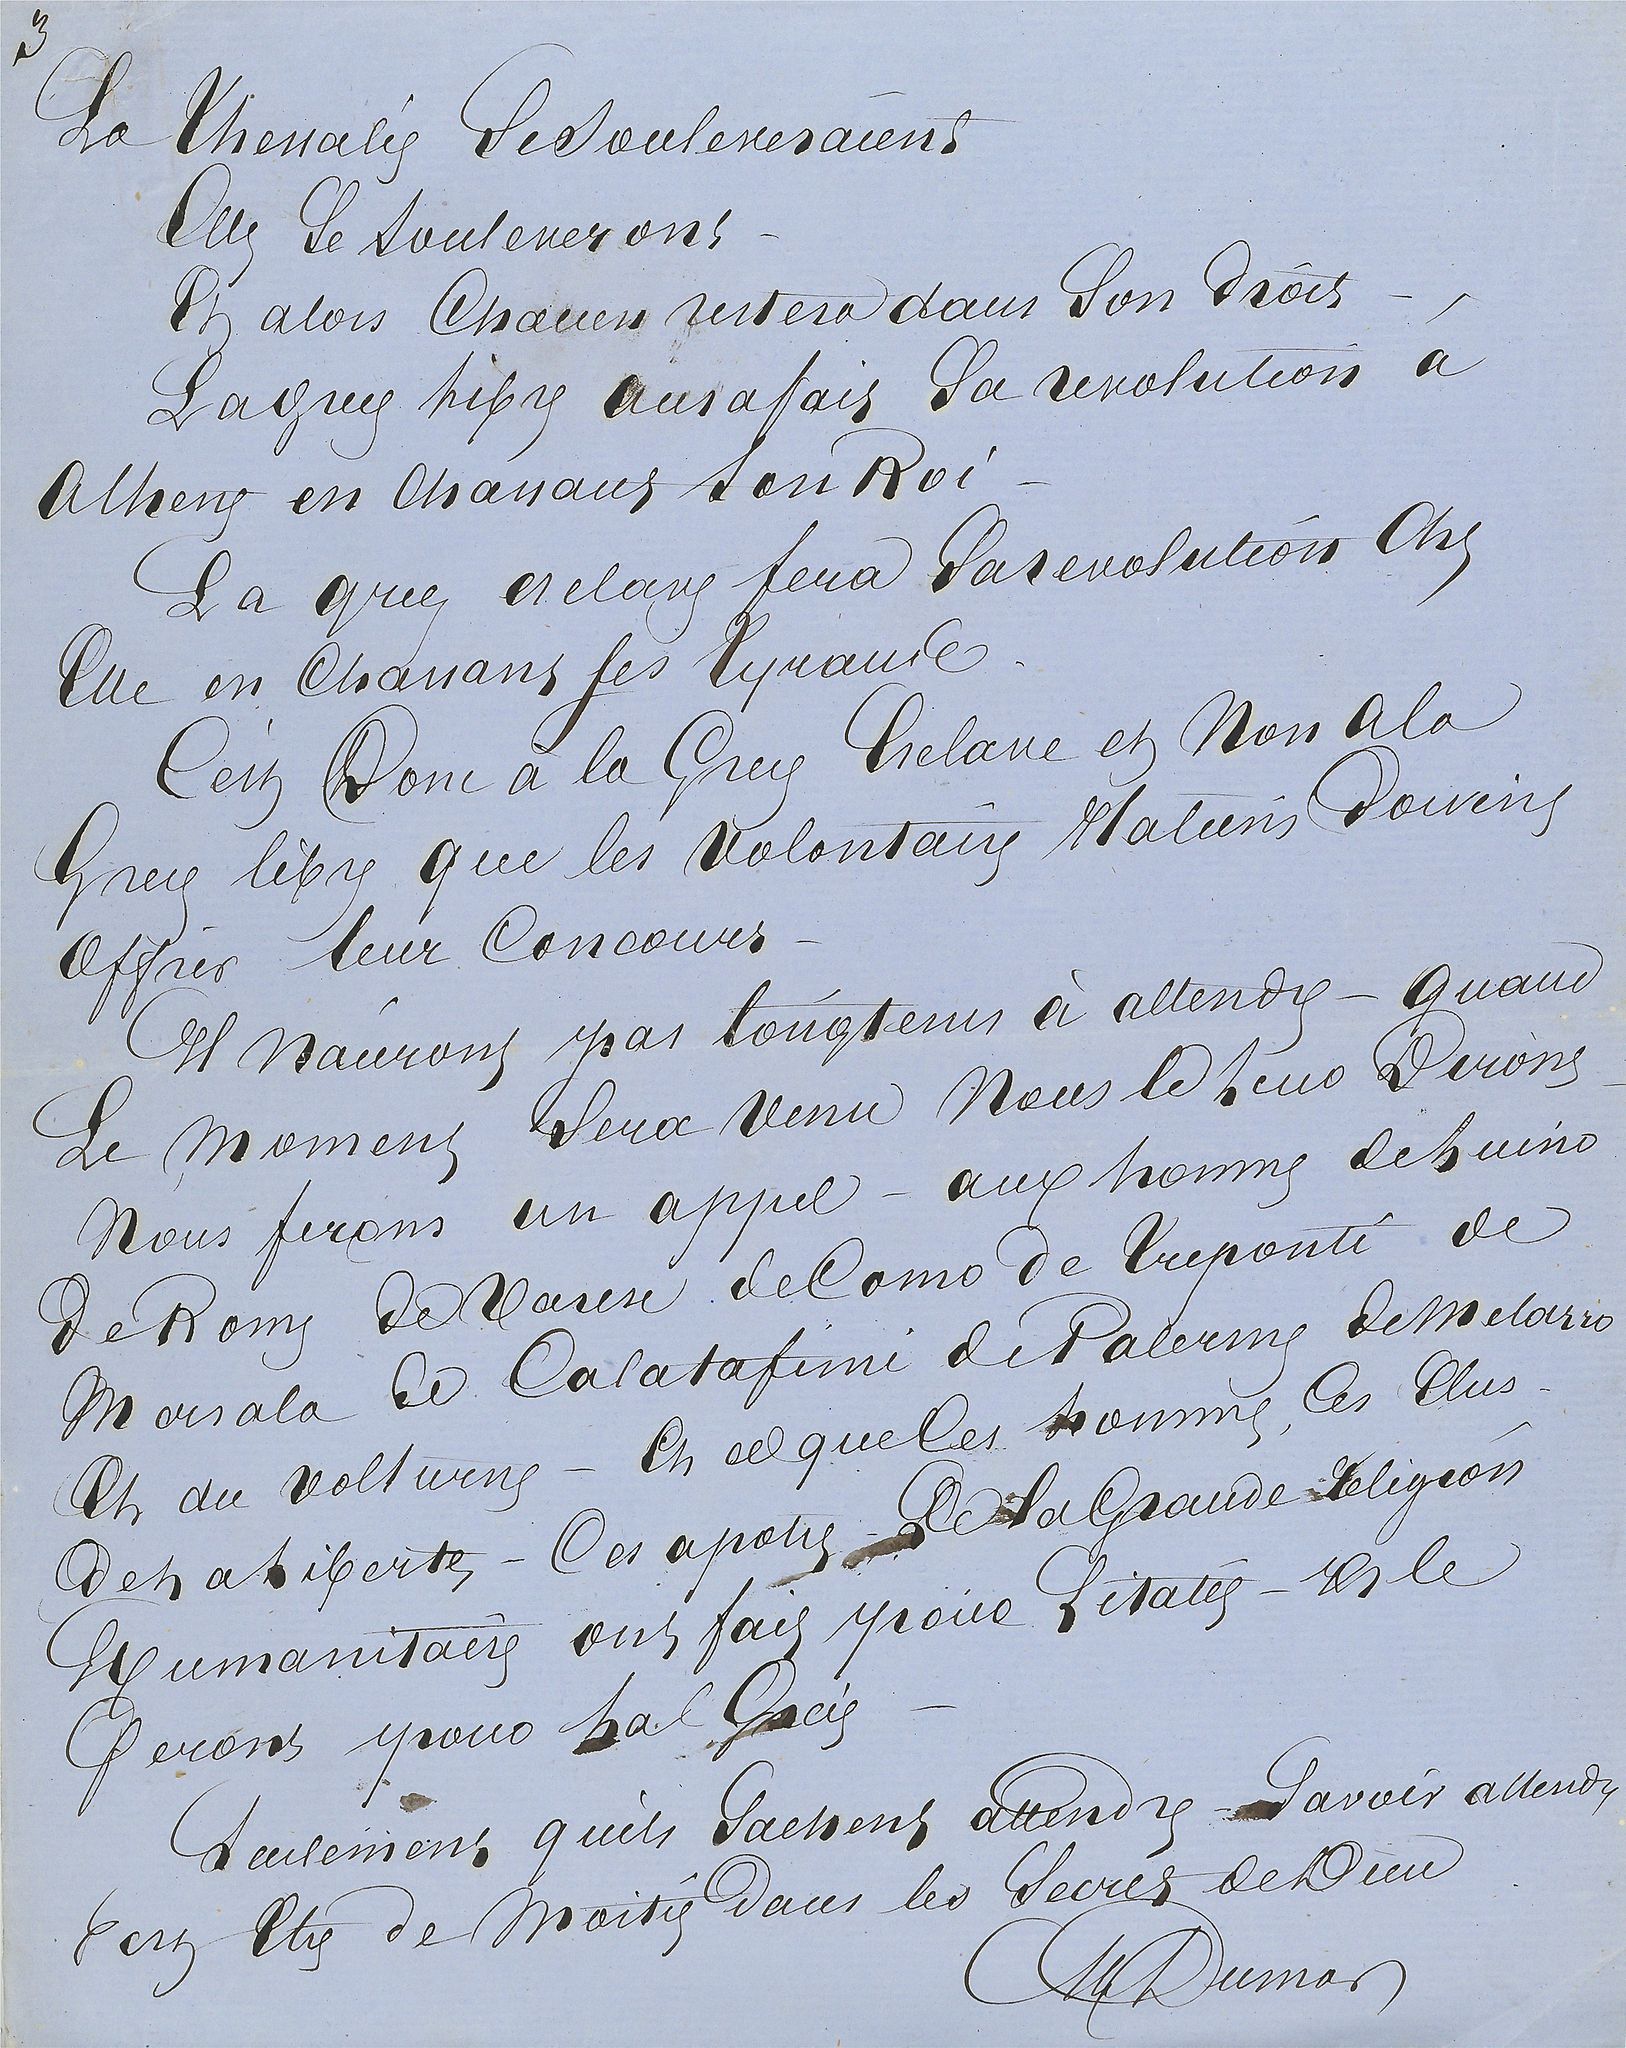 3
La Thessalie se souleveraient
Elles se souleveront –
Et alors chacun restera dans son droit –
La grece libre aura fait sa revolution à
Athenes en chassant son Roi –
La grece esclave fera sa revolution chez
Elle en chassant ses tyrans.
C'est donc à la Grece Esclave et non a la
Grece libre que les volontaires Italiens doivent
offrir leur concours –
Il n'auront pas longtems à attendre – quand
Le moment sera venu nous le leur dirons –
Nous ferons un appel – aux hommes de Luino
De Rome de Varese de Como de Treponti de
Marsala de Calatafimi de Palerme de Melazzo
Et du Volturne – Et ce que ces hommes, ces Elus –
De La Liberté, – Ces apotres – De la Grande religion
Humanitaire ont fait pour L'italie – ils le
Feront pour La Grece –
Seulement qu'ils sachent attendre – Savoir attendre
c'est Etre de moitié dans les secrets de Dieu
Al Dumas